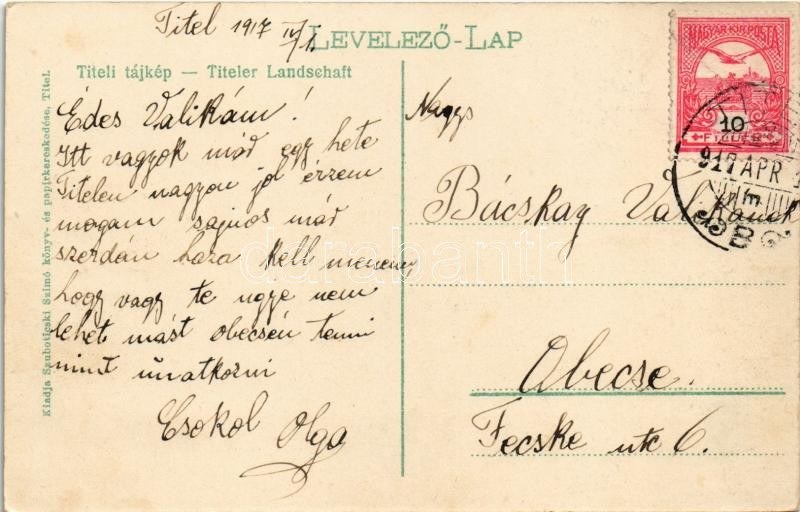 Titel 1917 IV/1.
LEVELEZŐ-LAP
Titeli tájkép — Titeler Landschaft
Kiadja Szuboticski Szimó könyv- és papirkereskedése, Titel.
Édes Valikám!
Itt vagyok mád egy hete
Titelen nagyon jól érzem
mogam sajnos mád
szerdán haza kell menem,
hogy vagy te ugye nem
lehet mást obecsén tenni
mint unatkozni
Csokol Olga
MAGYAR KIR. POSTA
10
FILLÉR
917 APR
Nagys
Bácskay Valikának
Obecse.
Fecske utc 6.
darabanth